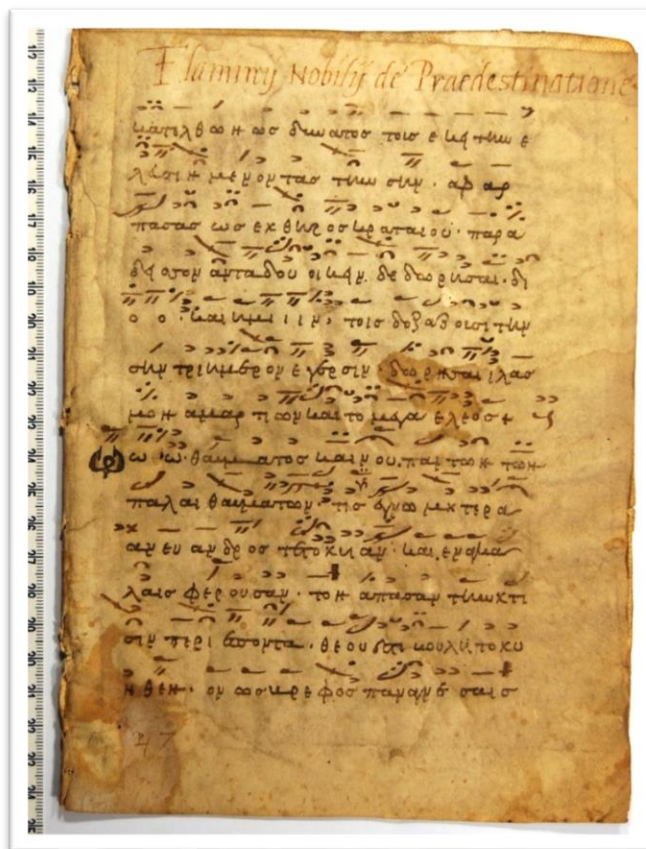 Flaminij Nobilij de Praedestinatione
κατελθων ως δυνατος τοις ε κει την ε
λευσιν μενοντας την σην · αρ αρ
πασας ως εκ θηρος κραταιου · παρα
δεισον αντ αδου οικειν δε δωρησαι · δι
ο ο και ημι ιν, τοις δοξαζουσι την
σην τριημερον εγερσιν · δωρησαι ιλασ
μον αμαρ τι ων και το μεγα ελεος +
ω ω · θαυματος καινου · παντων των
παλαι θαυματων · τις εγνω μητερα
αν ευ αν δρος τετοκυιαν · και εναγκα
λαις φερουσαν · τον απασαν την κτι
σιν περι εχοντα · θεου εστι βουλη το κυ
ηθεν · ον ως βρεφος παναγνε σαις
47